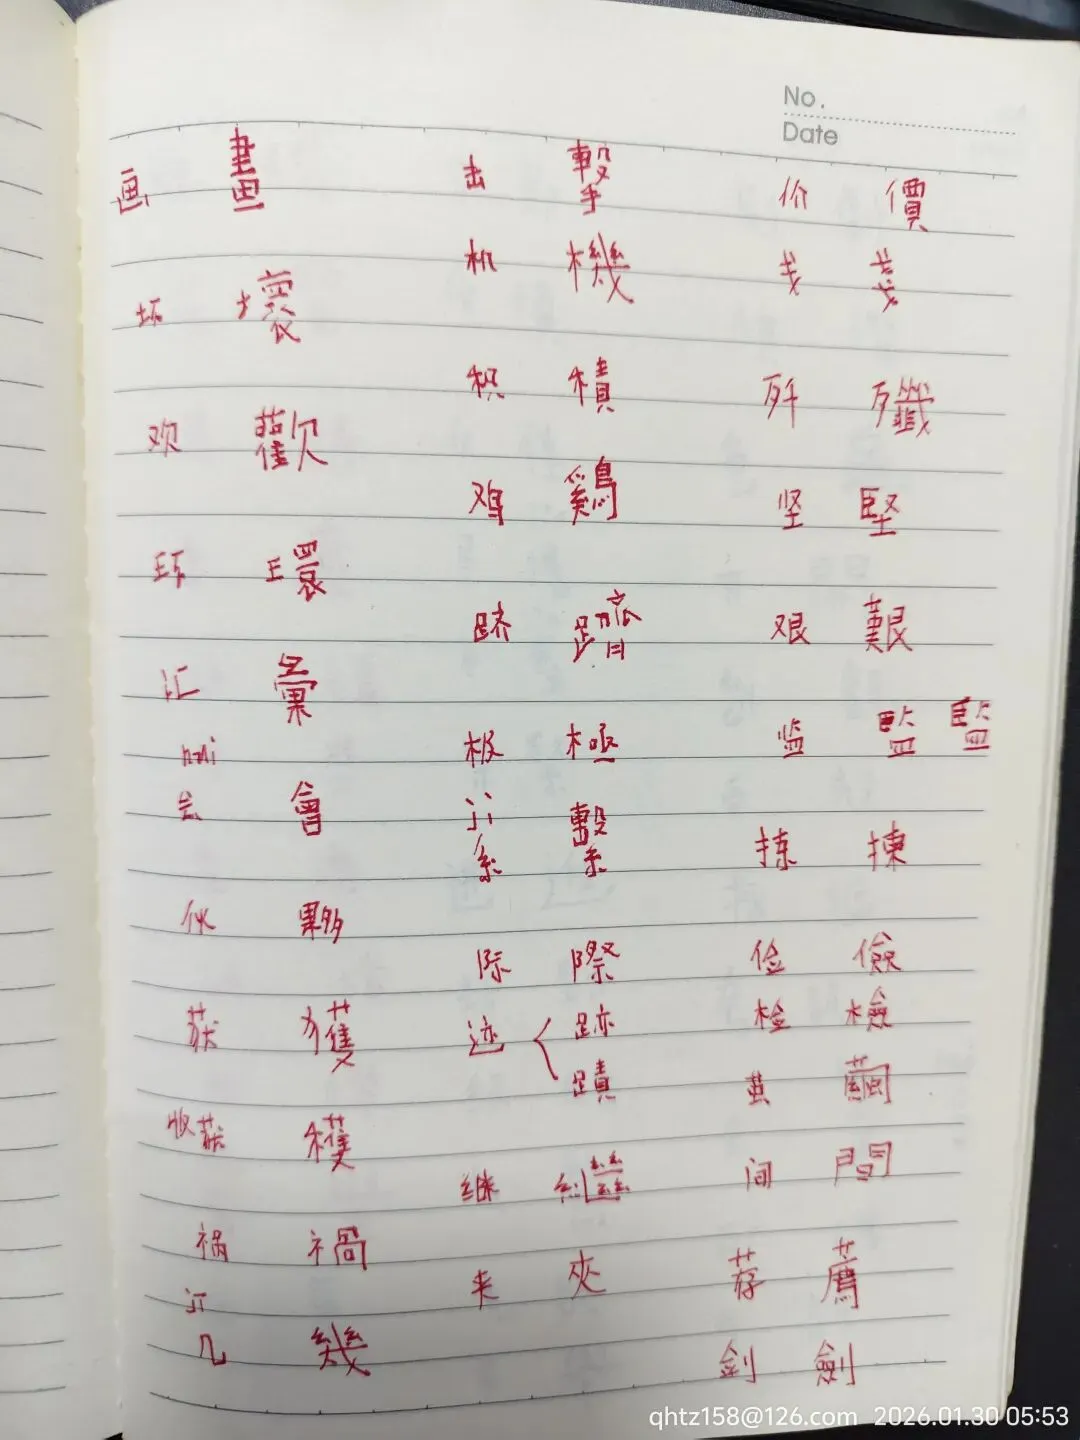 No.
Date
画 畫
坏 壞
欢 歡
环 環
汇 彙
huì
会 會
伙 夥
获 獲
收获 穫
祸 禍
jī
几 幾
击 擊
机 機
积 積
鸡 鷄
跻 躋
极 極
jì
系 繫
际 際
迹 跡
蹟
继 繼
夹 夾
价 價
戋 戔
歼 殲
坚 堅
艰 艱
监 監 監
拣 揀
俭 儉
检 檢
茧 繭
间 間
荐 薦
剑 劍
qhtz158@126.com 2026.01.30 05:53